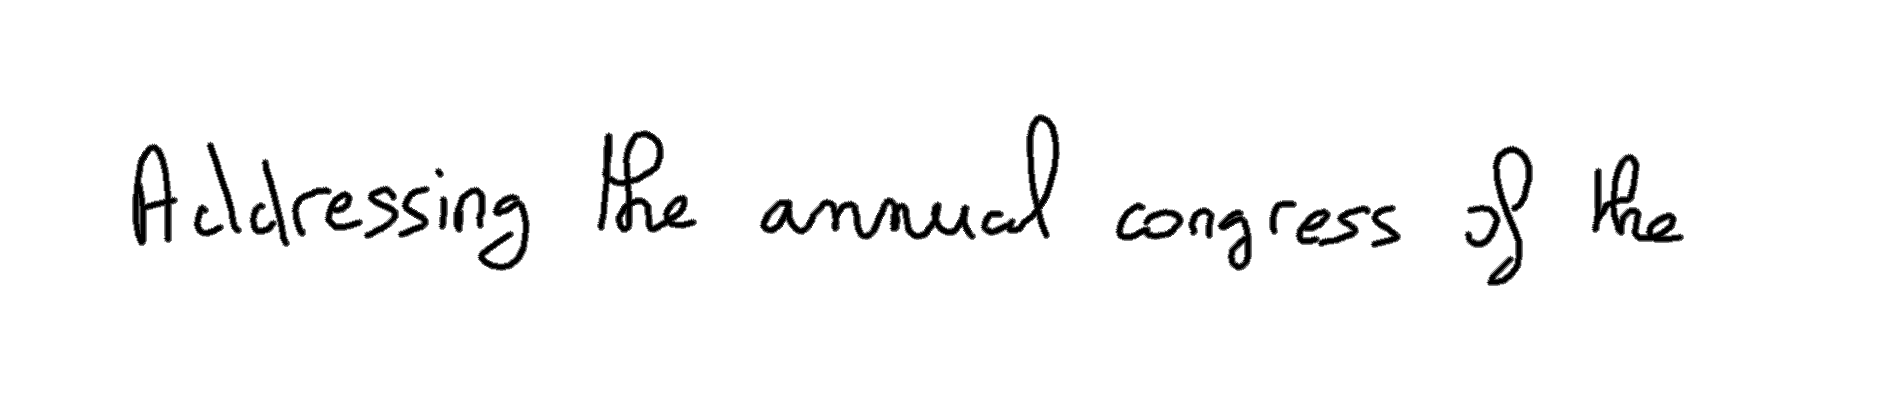 Addressing the annual congress of the